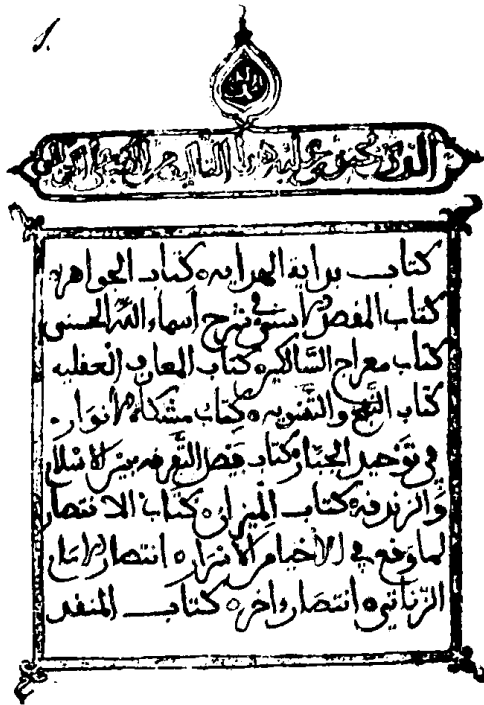 الذي عليه هذا
كتاب بداية الهداية، كتاب الجواهر،
كتاب المقصد الاسنى في شرح أسماء الله الحسنى
كتاب معراج السالكين، كتاب المعارف العقلية
كتاب النفخ والتسوية، كتاب مشكاة الانوار
في توحيد الجبار، كتاب فيصل التفرقة بين الاسلام
والزندقة، كتاب الميزان، كتاب الانتصار
لما وقع في الاحياء من الاسرار، انتصار
الزناتي، انتصار اخر، كتاب المنقذ